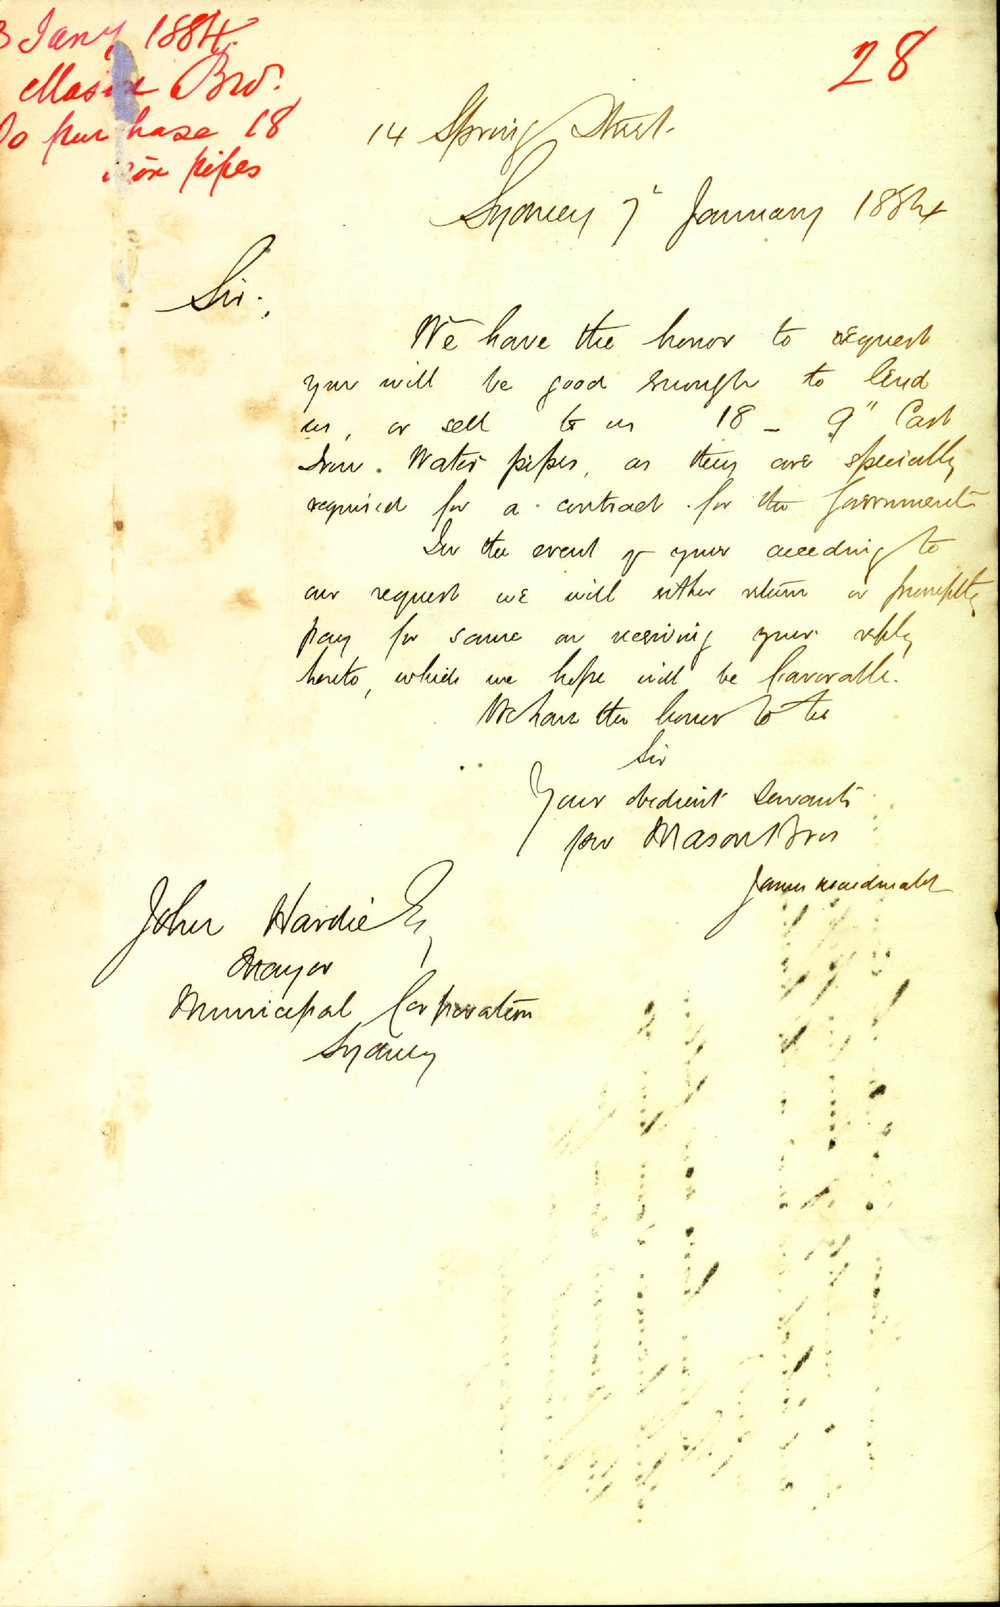 8 Jany 1884.
Mason Bros.
To purchase 18
iron pipes
28
14 Spring Street.
Sydney 7th January 1884
Sir.,
We have the honor to request
you will be good enough to lend
us, or sell to us 18 - 9" Cast
Iron. Water pipes, as they are specially
required for a contract for the Government
In the event of your acceding to
our request we will either return or promptly
pay for same on receiving your reply
hereto, which we hope will be favorable.
We have the honor to be
Sir
Your obedient Servants
per Mason Bros
James
John Hardie Esq,
Mayor
Municipal Corporation
Sydney